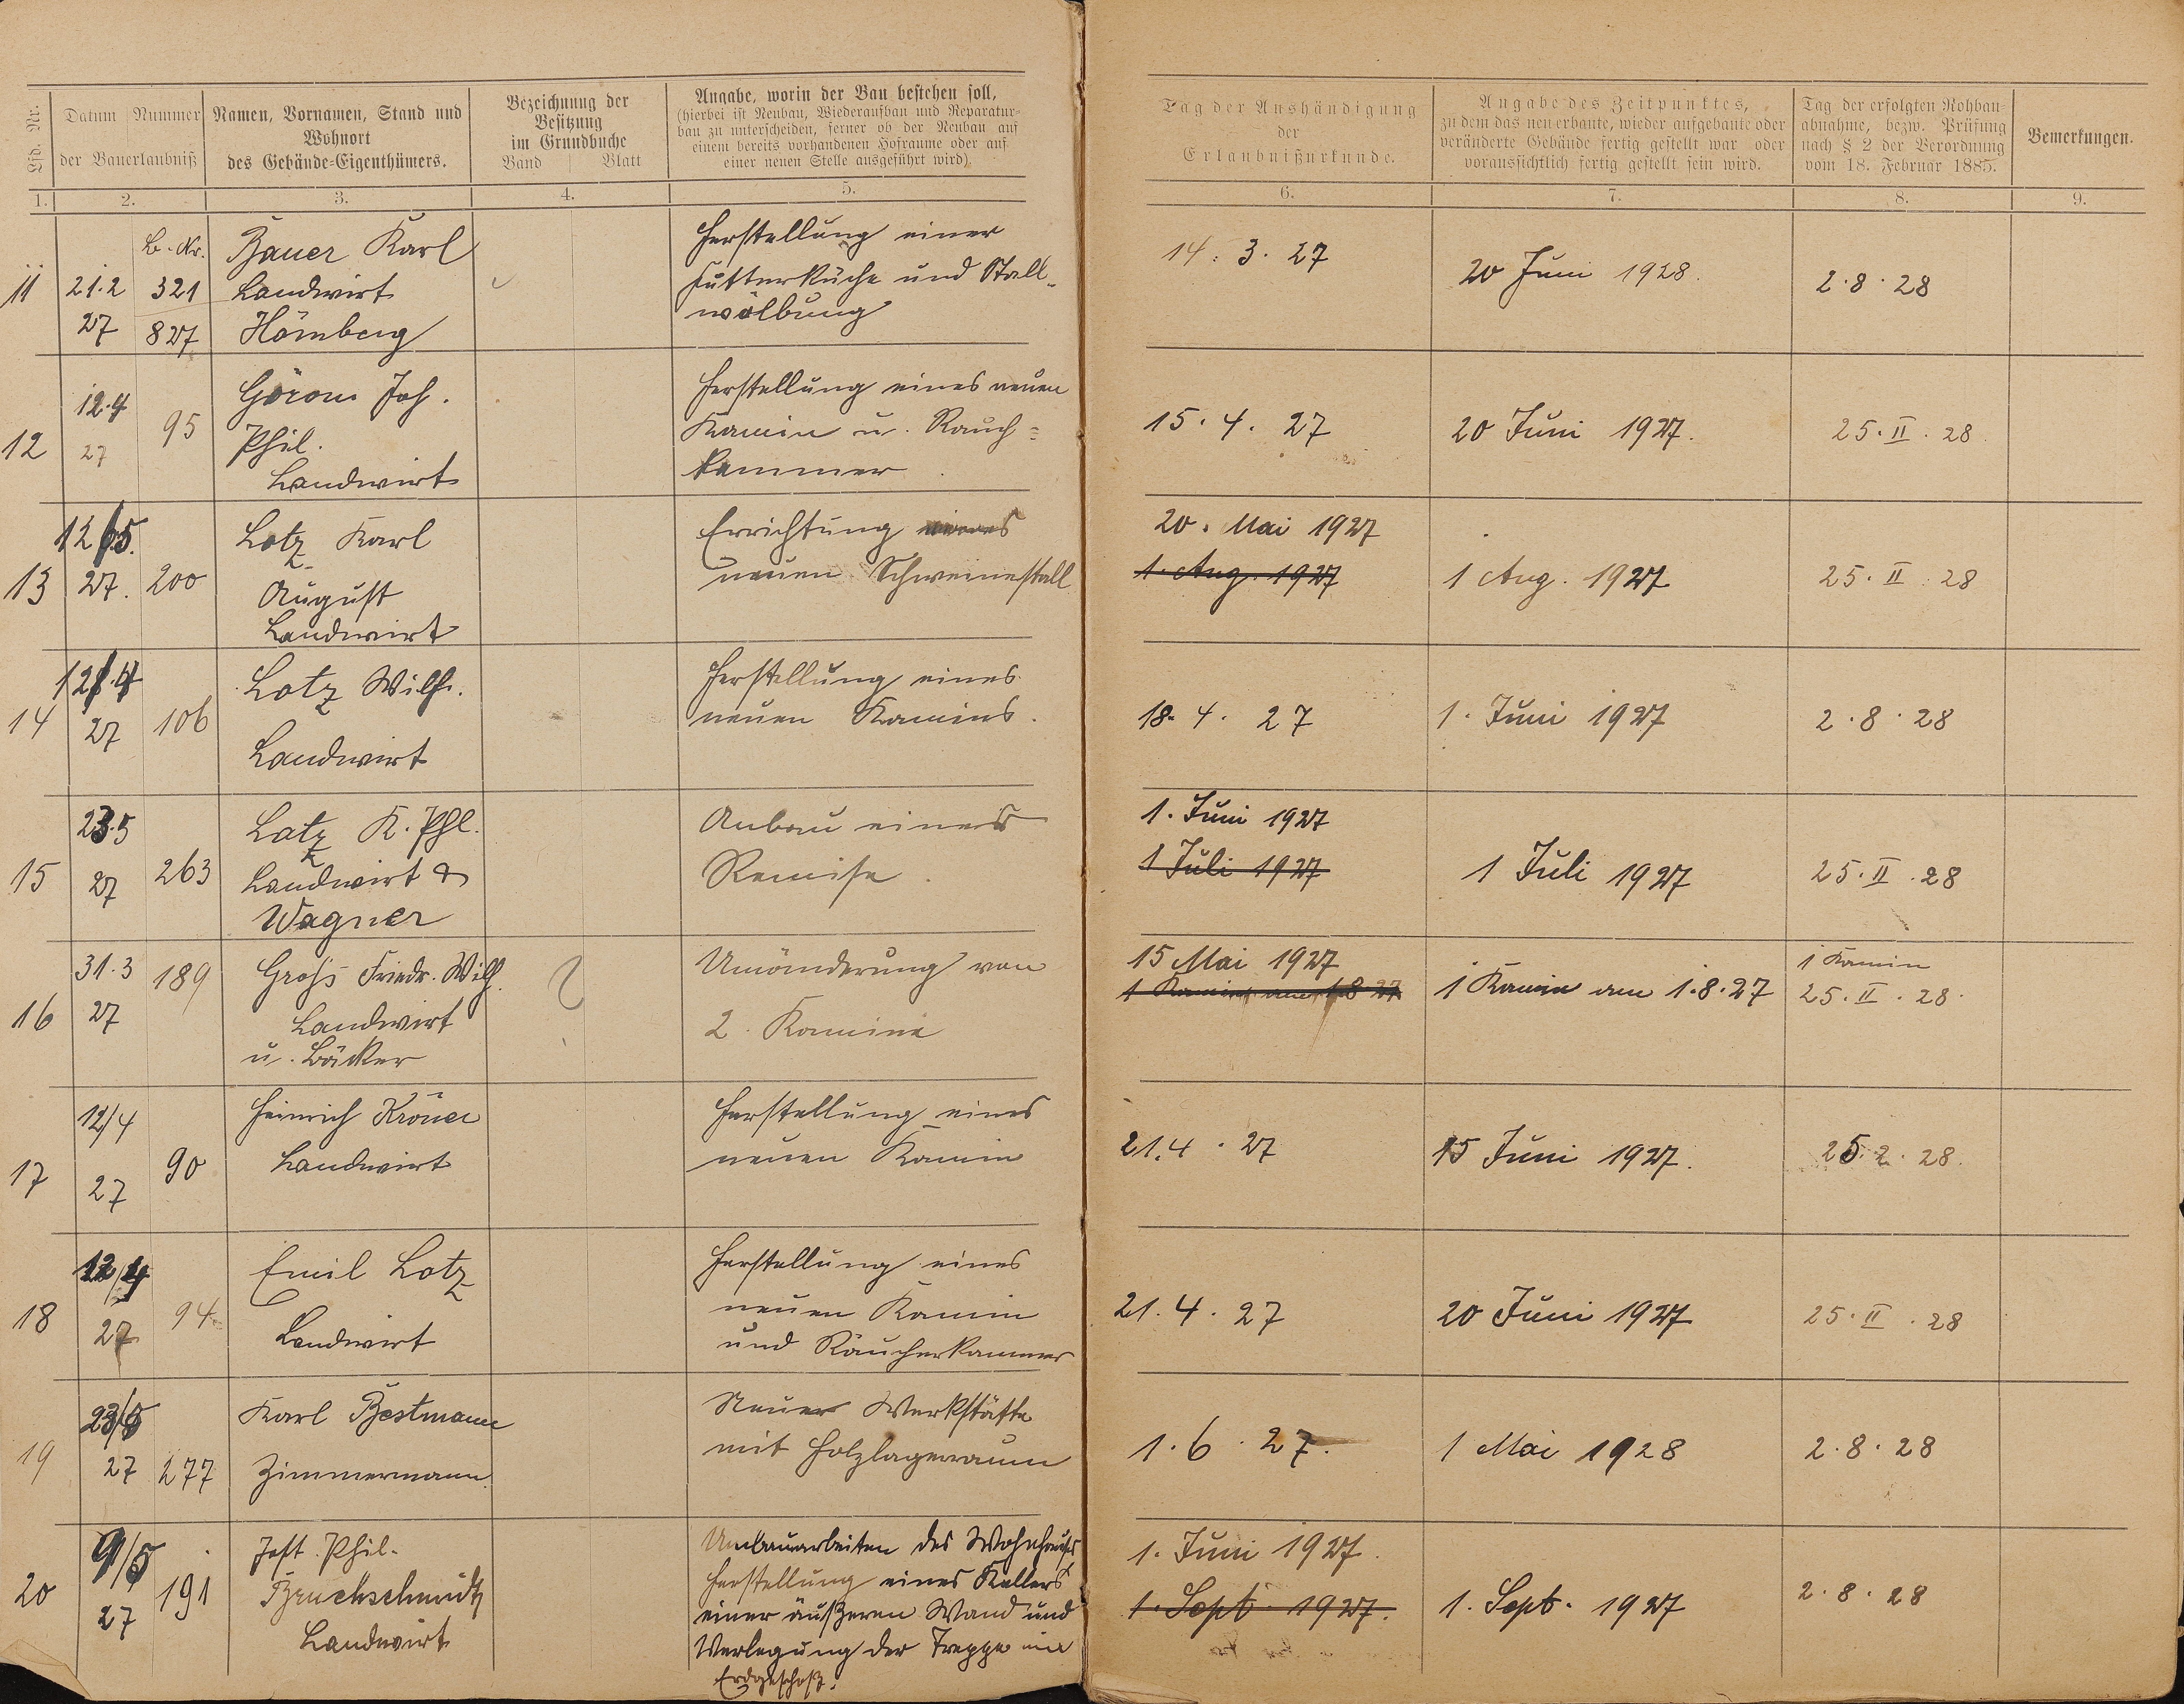 Lfd. Nr.
Datum Nummer
der Bauerlaubniß
Namen, Vornamen, Stand und
Wohnort
des Gebände-Eigenthümers.
Bezeichnung der
Besitzung
im Grundbuche
Band Blatt
Angabe, worin der Bau bestehen soll,
(hierbei ist Neubau, Wiederaufbau und Reparatur-
bau zu unterscheiden, ferner ob der Neubau auf
einem bereits vorhandenen Hofraume oder auf
einer neuen Stelle ausgeführt wird).
Tag der Aushändigung
der
Erlaubnißurkunde.
Angabe des Zeitpunktes,
zu dem das neu erbaute, wieder aufgebaute oder
veränderte Gebäude fertig gestellt war oder
voraussichtlich fertig gestellt sein wird.
Tag der erfolgten Rohbau-
abnahme, bezw. Prüfung
nach § 2 der Verordnung
vom 18. Februar 1885.
Bemerkungen.
1. 2. 3. 4. 5. 6. 7. 8. 9.
11
21.2
27
B.-Nr.
321
827
Bauer Karl
Landwirt
Hömberg
Herstellung einer
Futterküche und Stall-
wölbung
14. 3. 27
20 Juni 1928.
2.8.28
12
12.4
27
95
Joh.
Phil.
Landwirt
Herstellung eines neuen
Kamin u. Rauch=
kammer
15. 4. 27
20 Juni 1927.
25. II. 28
13
12/5.
27.
200
Lotz Karl
August
Landwirt
Errichtung eines
neuen Schweinestall
20. Mai 1927
1. Aug. 1927
1 Aug. 1927
25. II. 28
14
12.4
27
106
Lotz Wilh.
Landwirt
Herstellung eines
neuen Kamins.
18. 4. 27
1. Juni 1927
2.8.28
15
23.5
27
263
Lotz K. Phl.
Landwirt &
Wagner
Anbau einer
Remise.
1. Juni 1927
1 Juli 1927
1 Juli 1927
25. II. 28
16
31.3
27
189
Groß Friedr. Wilh.
Landwirt
u. Bäcker
Umänderung von
2. Kamine
15 Mai 1927
1 Kamin am 1.8.27
1 Kamin am 1.8.27
1 Kamin
25. II. 28.
17
12/4
27
90
Heinrich Kröner
Landwirt
Herstellung eines
neuen Kamin
21.4.27
15 Juni 1927.
25.2.28.
18
12/4
27
94
Emil Lotz
Landwirt
Herstellung eines
neuen Kamin
und Räucherkammer
21.4.27
20 Juni 1927
25. II. 28
19
23/5
27
277
Karl Bestmann
Zimmermann.
Neuer Werkstätte
mit Holzlagerraum
1.6.27.
1 Mai 1928
2.8.28
20
9/5
27
191
Jost. Phil.
Bruchschmidt
Landwirt
Umbauarbeiten des Wohnhauses
Herstellung eines Kellers
einer äußeren Wand und
Verlegung der Treppe im
Erdgeschoß.
1. Juni 1927.
1. Sept. 1927.
1. Sept. 1927
2.8.28